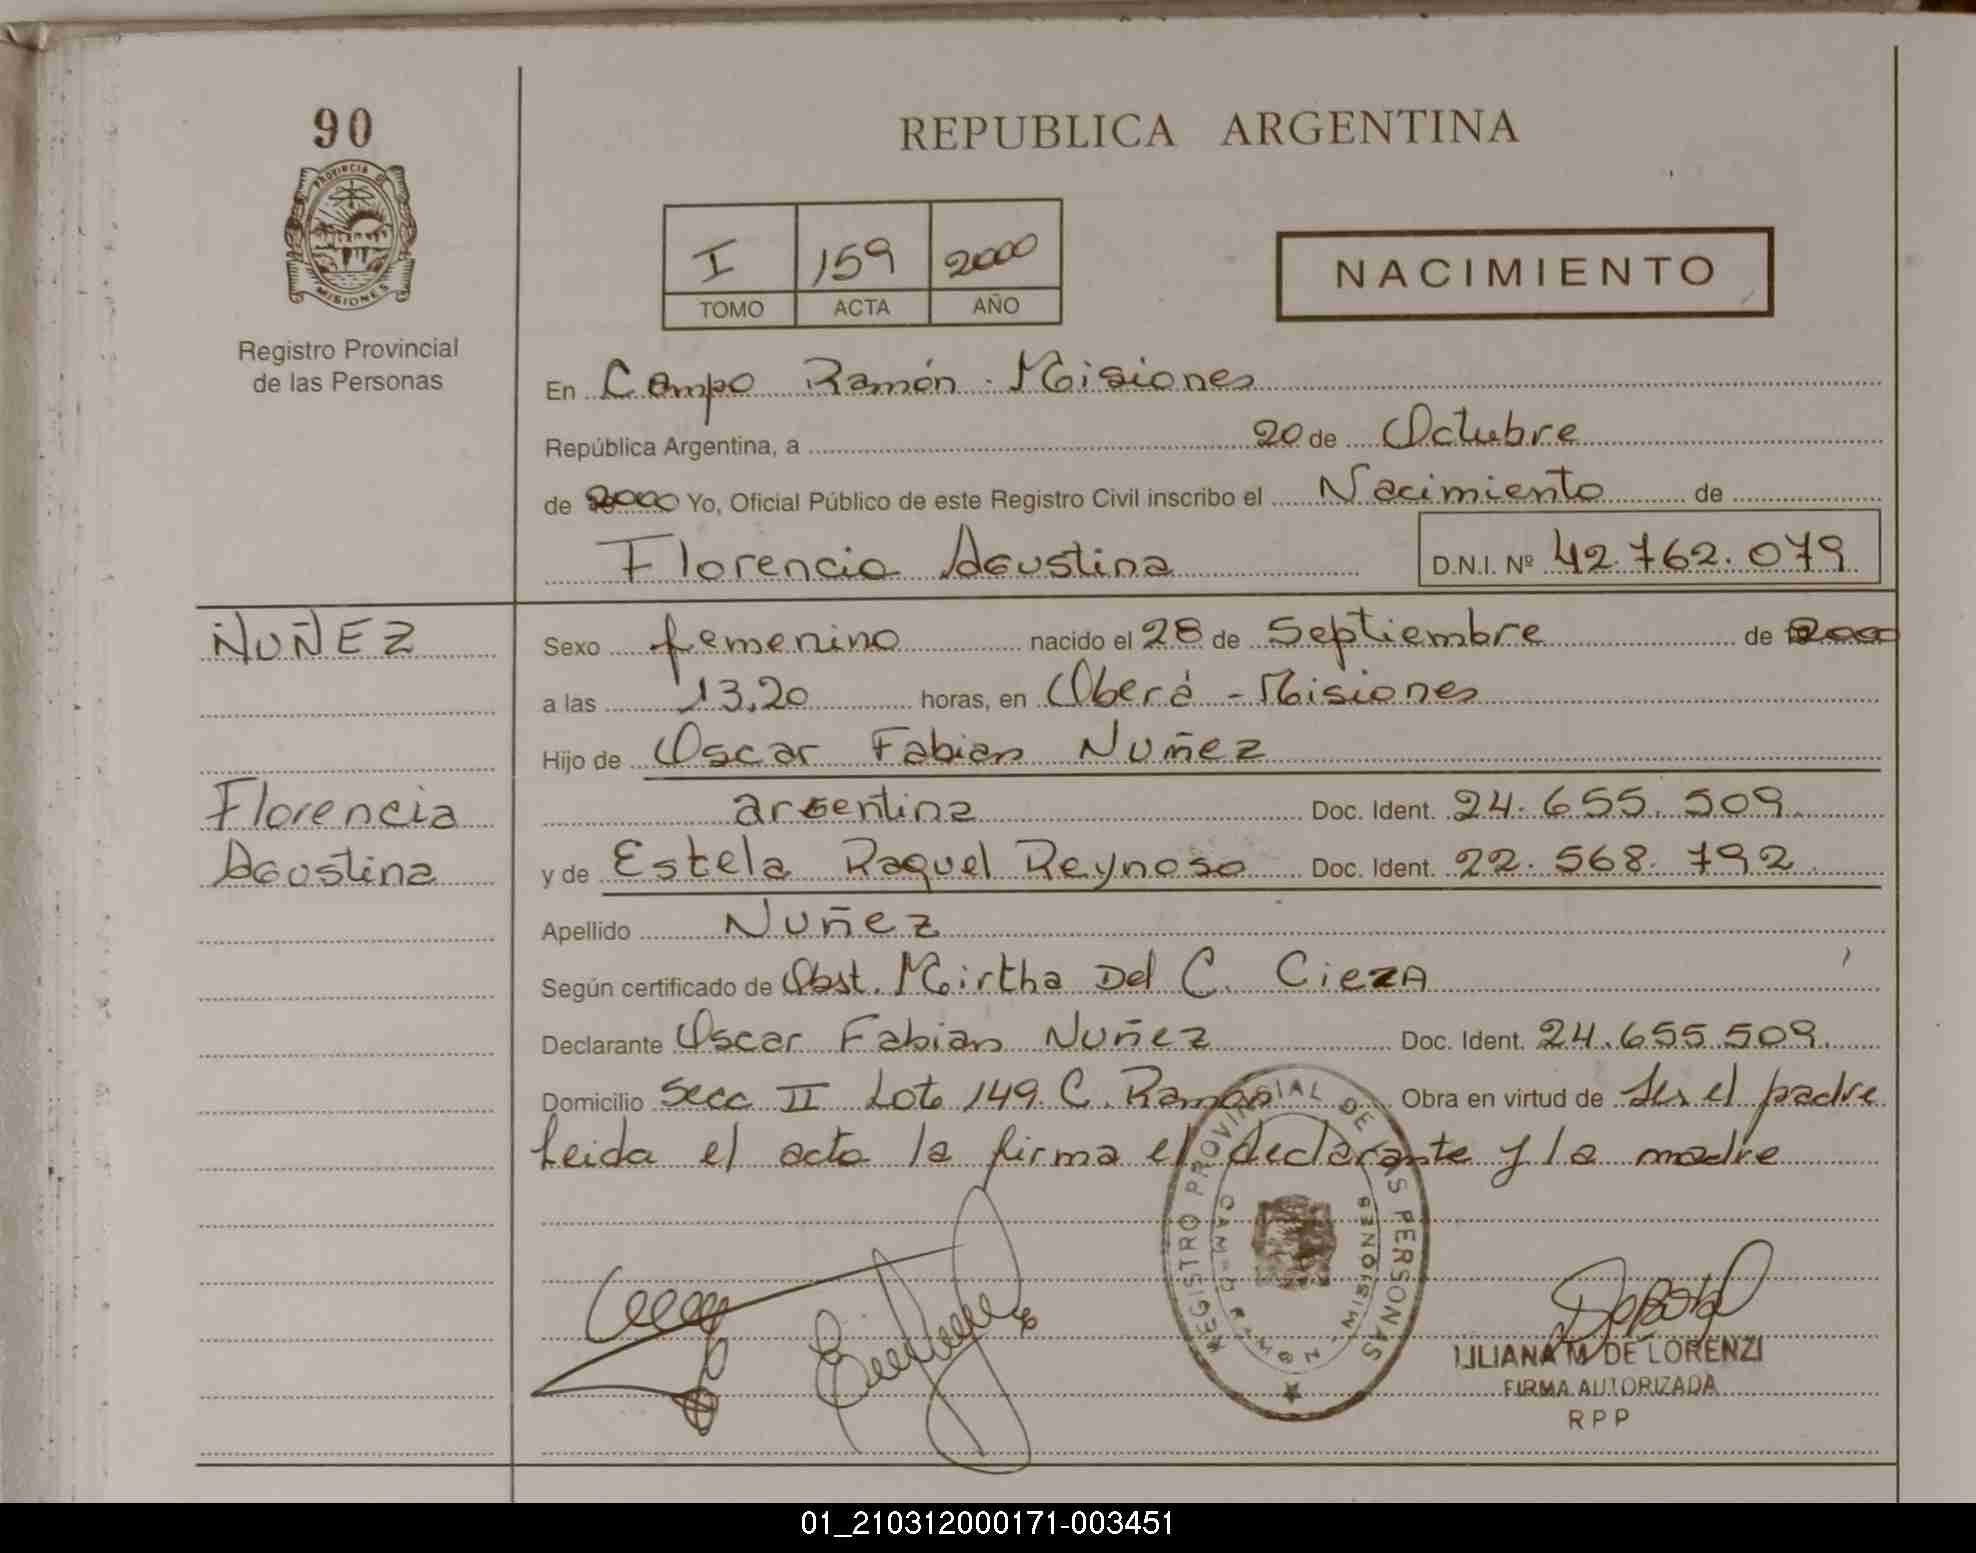 90
PROVINCIA DE
MISIONES
Registro Provincial
de las Personas
REPUBLICA ARGENTINA
I 159 2000
TOMO ACTA AÑO
NACIMIENTO
En Campo Ramón - Misiones
República Argentina, a 20 de Octubre
de 2000 Yo, Oficial Público de este Registro Civil inscribo el Nacimiento de
Florencia Agustina D.N.I. Nº 42.762.079
NUÑEZ
Florencia
Agustina
Sexo femenino nacido el 28 de Septiembre de 2000
a las 13,20 horas, en Oberá - Misiones
Hijo de Oscar Fabian Nuñez
argentina Doc. Ident. 24.655.509
y de Estela Raquel Reynoso Doc. Ident. 22.568.792
Apellido Nuñez
Según certificado de Obst. Mirtha Del C. CiezA
Declarante Oscar Fabian Nuñez Doc. Ident. 24.655.509
Domicilio Secc II Lote 149. C. Ramón Obra en virtud de ser el padre
Leida el acta la firma el declarante y la madre
REGISTRO PROVINCIAL DE LAS PERSONAS
CAMPO RAMON - MISIONES
LILIANA M DE LORENZI
FIRMA AUTORIZADA
RPP
01_210312000171-003451